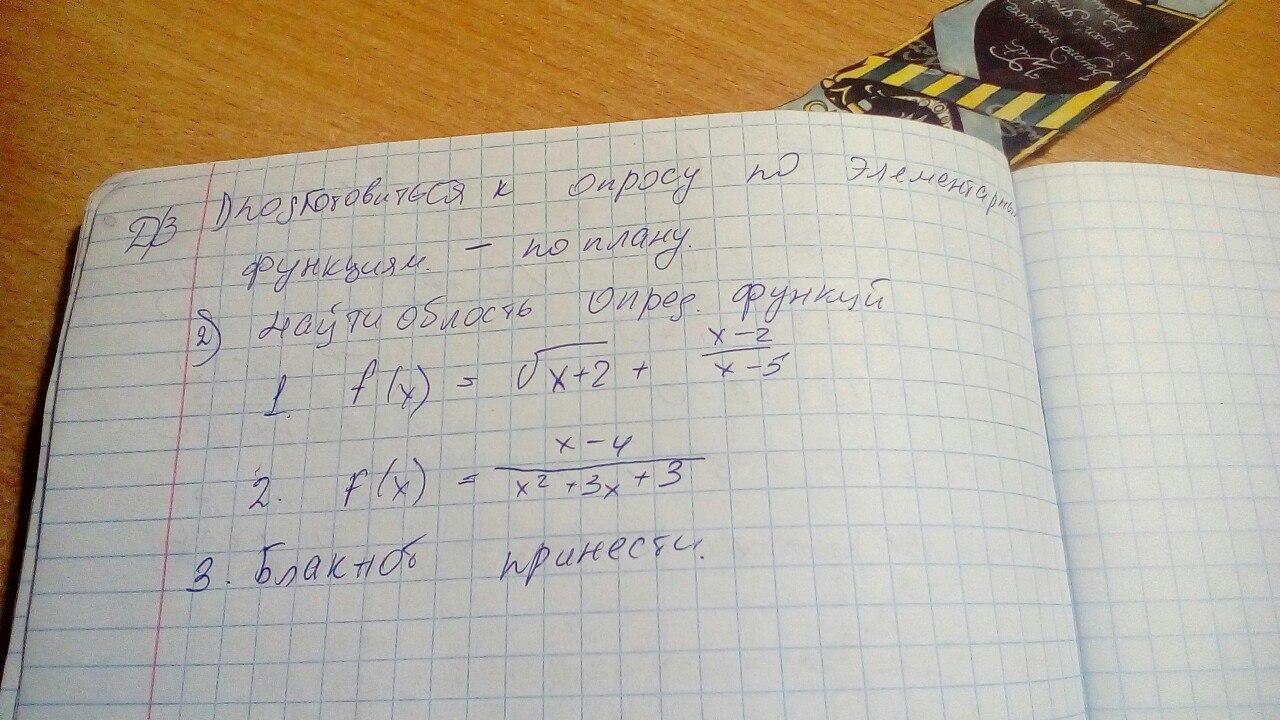 Д/З 1) подготовиться к опросу по элементарным
функциям. – по плану.
2) найти облость опред. функций
1. f(x) = √x+2 + x-2/x-5
2. f(x) = x-4/x²+3x+3
3. Блакноб принести.
With
beyond measure
is man's